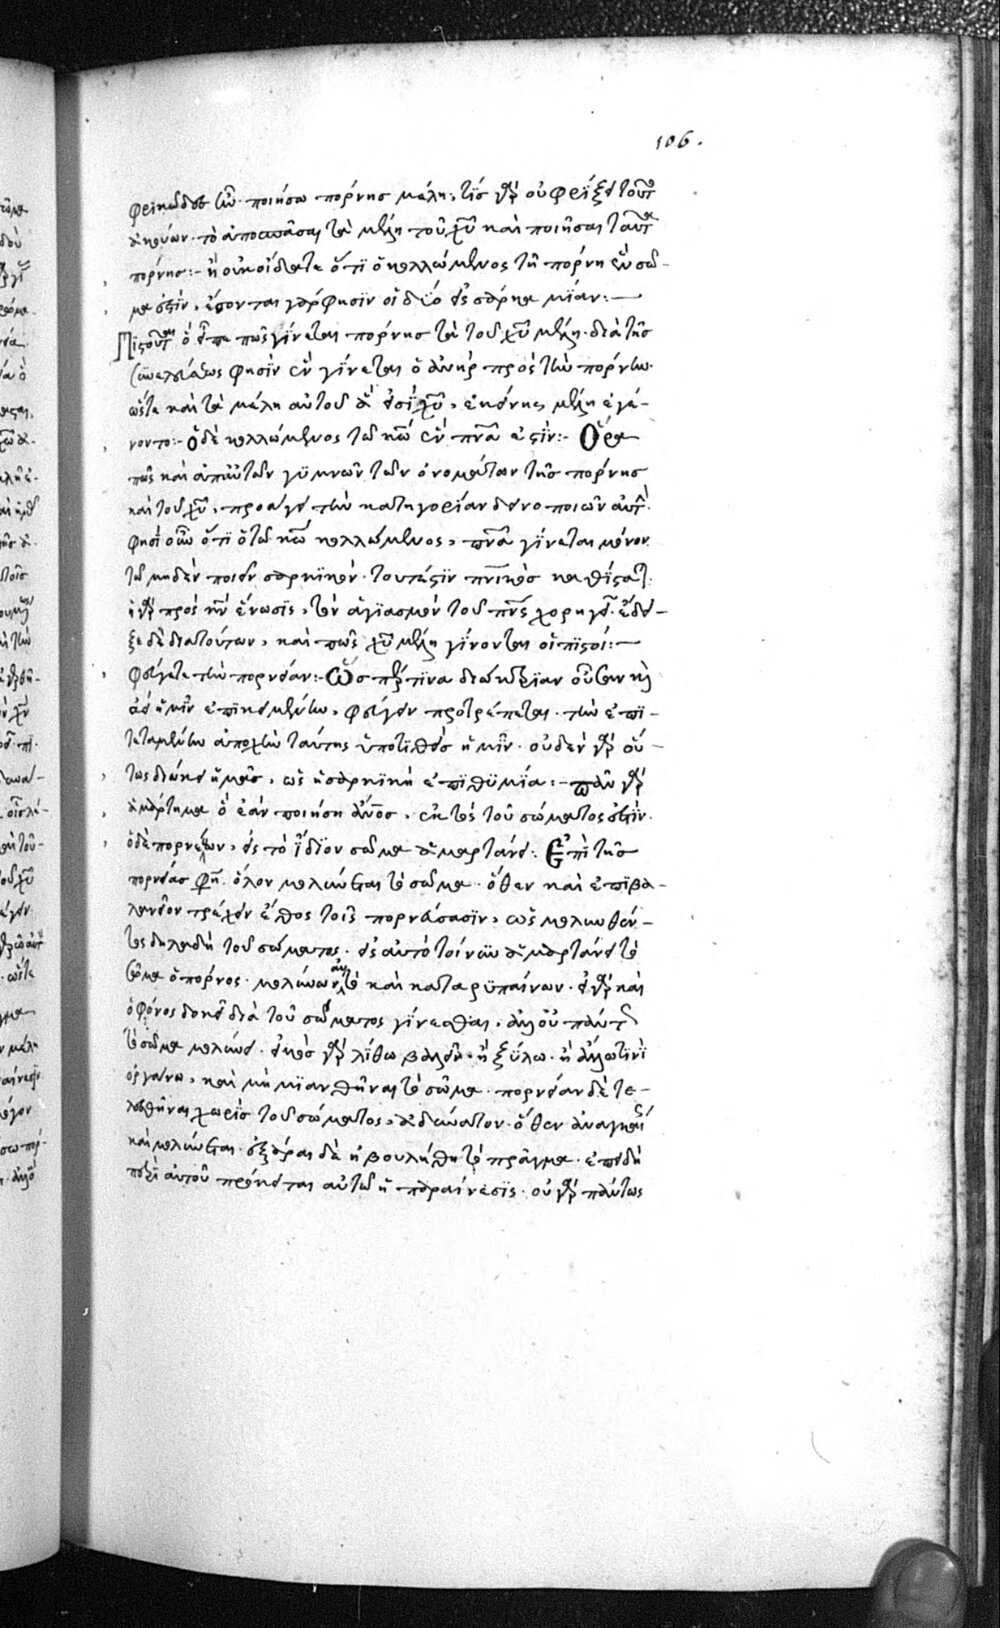 106.
φρικωδῶς οὖν· ποιήσω πόρνης μέλη; τίς γὰρ οὐ φρίξει τοῦτο
ἀκούων· τὸ ἀποσπάσαι τὰ μέλη τοῦ χῦ καὶ ποιῆσαι ταῦτα
πόρνης:- ἢ οὐκ οἴδατε ὅτι ὁ κολλώμενος τῇ πόρνῃ ἓν σῶ-
μα ἐστίν, ἔσονται γάρ φησιν οἱ δύο εἰς σάρκα μίαν:-
Πιστοῦται ὃ εἶπε πῶς γίνεται πόρνης τὰ τοῦ χῦ μέλη· διὰ τῆς
συνελεύσεως φησὶν ἓν γίνεται ὁ ἀνὴρ πρὸς τὴν πόρνην·
ὥστε καὶ τὰ μέλη αὐτοῦ ἅ εἰσι χῦ, ἐκείνης μέλη ἐγέ-
νοντο:- ὁ δὲ κολλώμενος τῷ κῶ ἓν πνᾶ ἐστιν:- Ὅρα
πῶς καὶ ἀπ' αὐτῶν γυμνῶν τῶν ὀνομάτων τῆς πόρνης
καὶ τοῦ χῦ, προάγει τὴν κατηγορίαν δεινοποιῶν αὐτήν·
φησὶ οὖν ὅτι ὁ τῷ κῶ κολλώμενος, πνᾶ γίνεται μόνον
τῷ μηδὲν ποιεῖν σαρκικόν· τουτέστιν πνικὸς καθίσταται·
ἡ γὰρ πρὸς κν ἕνωσις, τὸν ἁγιασμὸν τοῦ πνς χορηγεῖ· ἔδει-
ξε δὲ διὰ τούτων, καὶ πῶς χῦ μέλη γίνονται οἱ πιστοί:-
φεύγετε τὴν πορνείαν:- Ὥσπερ τινα διώκτριαν οὖσαν καὶ
ἀεὶ ἡμῖν ἐπικειμένην, φεύγειν προτρέπεται· τὴν ἐπι-
τεταμένην ἀποχὴν ταύτης ὑποτιθεὶς ἡμῖν· οὐδὲν γὰρ οὕ-
τως διώκει ἡμᾶς, ὡς ἡ σαρκικὴ ἐπιθυμία:- πᾶν γὰρ
ἁμάρτημα ὃ ἐὰν ποιήσῃ ἄνος, ἐκτὸς τοῦ σώματος ἐστίν·
ὁ δὲ πορνεύων, εἰς τὸ ἴδιον σῶμα ἁμαρτάνει: Ἐπὶ τῆς
πορνείας φη ὅλον μολύνεται τὸ σῶμα· ὅθεν καὶ ἐπὶ βα-
λανεῖον τρέχειν ἔθος τοῖς πορνεύσασιν, ὡς μολυνθέν-
τος δηλαδὴ τοῦ σώματος· εἰς αὐτὸ τοίνυν ἁμαρτάνει τὸ
σῶμα ὁ πόρνος· μολύνων αὐτὸ καὶ καταρυπαίνων· εἰ γὰρ καὶ
ὁ φόνος δοκεῖ διὰ τοῦ σώματος γίνεσθαι, ἀλλ' οὐ πάντως
τὸ σῶμα μολύνει· εἰκὸς γὰρ λίθῳ βαλεῖν· ἢ ξύλῳ· ἢ ἄλλῳ τινὶ
ὀργάνῳ, καὶ μὴ μιανθῆναι τὸ σῶμα· πορνείαν δὲ τε-
λεσθῆναι χωρὶς τοῦ σώματος, ἀδύνατον· ὅθεν ἀνάγκη
καὶ μολύνεται· ἐξᾶραι δὲ ἠβουλήθη τὸ πρᾶγμα· ἐπειδὴ
περὶ αὐτοῦ πρόκειται αὐτῷ ἡ παραίνεσις· οὐ γὰρ πάντως